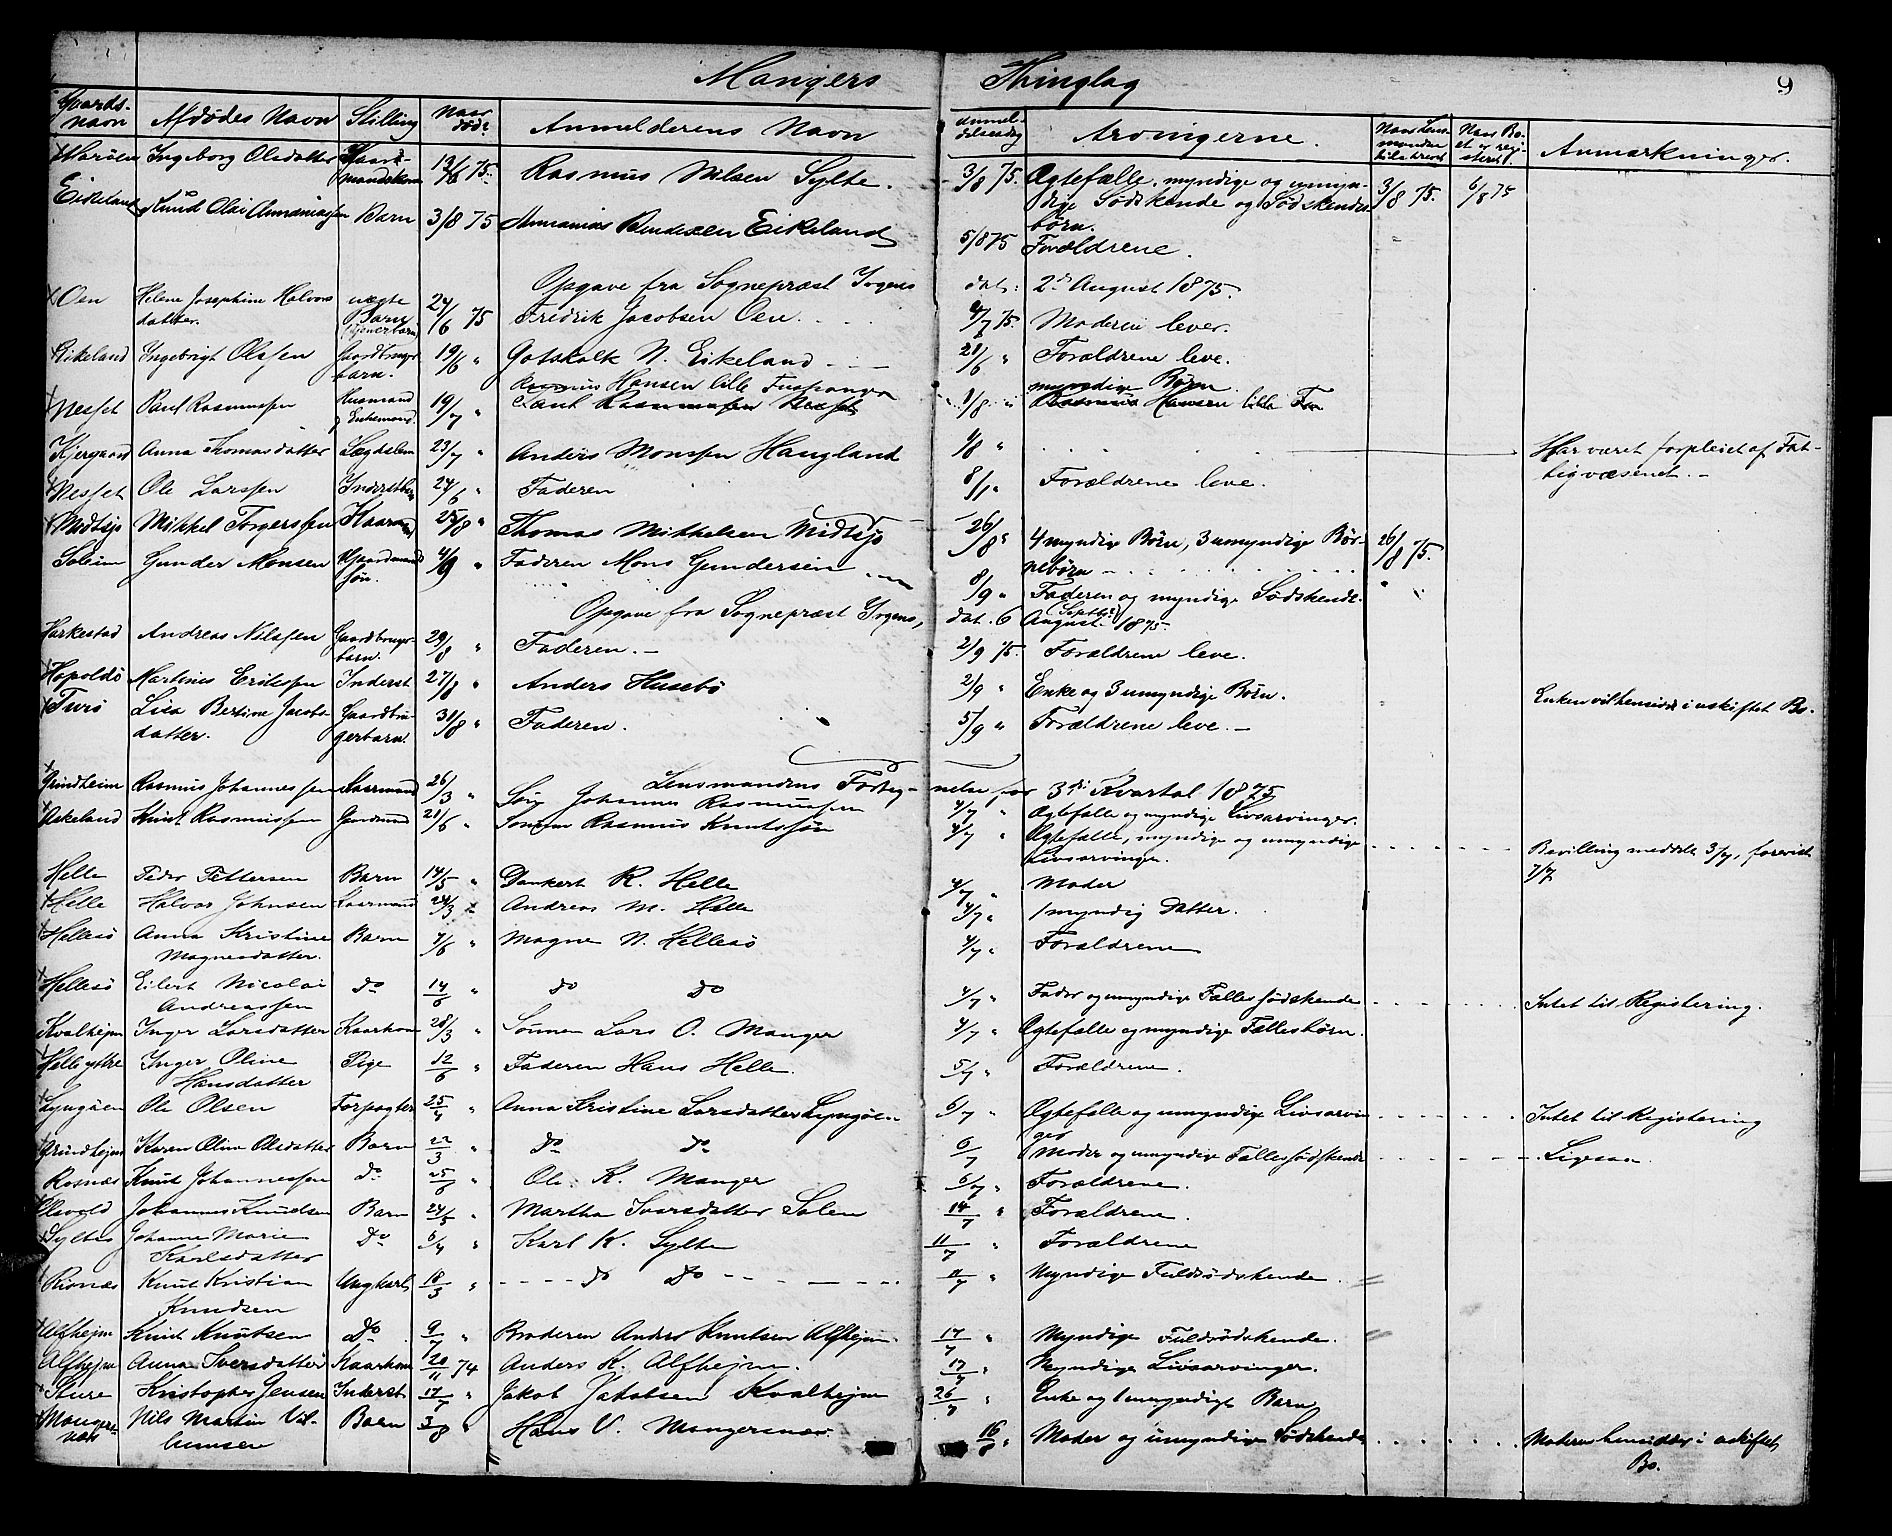 Mangers Thinglag 9
Gaards-navn Afdødes Navn Stilling Naar død? Anmelderens Navn Anmeldelsesdag Arvingerne. Naar Lensmanden tilskrevet Naar Boet er registeret? Anmærkninger.
Ingeborg Olsdatter 13/6 75. Rasmus Nilsen Sylte. 3/8 75. Ægtefælle, myndige og umyndige Sødskende og Sødskendebørn. 3/8 75. 6/8 75
Eikeland Knud Olai Annaniassen Barn 3/8 75 Annanias Bendixen Eikeland 5/8 75 Forældrene.
Opgave fra Sognepræst Irgens dat: 2d August 1875.
Oen Helene Josephine Halvorsdatter. uægte Barn 24/6 75 Fredrik Jacobsen Oen. 4/7 75. Moderen lever.
Eikeland Ingebrigt Olssen Gaardbrugerbarn. 19/6 " Gotskalk N. Eikeland 21/6 " Forældrene leve.
Nesset Paul Rasmussen Husmand og Enkemand. 19/7 " Rasmus Hansen lille Fosvangen Paul Rasmussen Nesset 1/8 " myndige Børn. Rasmus Hansen lille Fos
Kjergaard Anna Thomasdatter Lægdslem 23/7 " Anders Monssen Haugland 4/8 " Har været forpleiet af Fattigvæsenet. -
Nesset Ole Larssen Inderstbarn 24/6 " Faderen 8/1 " Forældrene leve.
Midtsjø Mikkel Torgerssen Kaarmand 25/8 " Thomas Mikkelsen Midtsjø 26/8 " 4 myndige Børn, 3 umyndige Børnebørn 26/8 75.
Soleim Gunder Monsen søn. 4/9 " Faderen Mons Gundersen 8/9 " Faderen og myndige Sødskende.
Opgave fra Sognepræst Irgens, dat. 6 August (Septbr) 1875.
Harkestad Andreas Nilssen Gaardbrugerbarn. 29/8 " Faderen. - 2/9 75. Forældrene leve.
Hopoldø Martines Erikssen Inderst 27/8 " Anders Husebø 2/9 " Enke og 3 umyndige Børn. Enken vil hensidde i uskiftet Bo.
Turø Lisa Bertine Jacobsdatter. Gaardbrugerbarn. 31/8 " Faderen. 5/9 " Forældrene leve. -
Lensmandens Fortegnelse for 3die Kvartal 1875
Grindheim Rasmus Johannessen Kaarmand 26/3 " Søn Johannes Rasmussen 4/7 " Ægtefælle og myndige Livsarvinger.
Askeland Knut Rasmussen Gardmand 21/6 " Sønnen Rasmus Knutssøn 4/7 " Ægtefælle, myndige og umyndige Livsarvinger. Bevilling meddelt 3/7, forevist 7/7
Helle Peder Pettersen Barn 14/5 " Dankert R. Helle 4/7 " Moder
Helle Halvor Johnsen Kaarmand 24/3 " Andreas M. Helle 4/7 " 1 myndig Datter.
Hellesø Anna Kristine Magnesdatter. Barn 7/6 " Magne N. Hellesø 4/7 " Forældrene
Hellesø Eilert Nicolai Andreassen do 14/6 " do do 4/7 " Fader og umyndige Fælles sødskende Intet til Registering.
Kvalhejm Inger Larsdatter Kaarkone 28/3 " Sønnen Lars O. Manger 4/7 " Ægtefælle og myndige Fællesbørn.
Helle ystre Inger Oline Hansdatter Pige 12/6 " Faderen Hans Helle. 5/7 " Forældrene.
Lyngøen Ole Olsen Forpagter 25/4 " Anna Kristine Larsdatter Lyngøen 6/7 " Ægtefælle og umyndige Livsarvinger Intet til Registering
Grindhejm Karen Olina Olsdatter Barn 22/3 " do do 6/7 Moder og umyndige Fællessødskende Ligesaa.
Rosnæs Knut Johannessen do 25/6 " Ole K. Manger 6/7 " Forældrene.
Johannes Knudsen Barn 24/5 " Martha Iversdatter Solem 14/7 " Forældrene.
Syltes Johanne Marie Karlsdatter Do 6/7 " Karl K. Sylte 11/7 " Forældrene
Risnæs Knut Kristian Knudsen Ungkarl 18/3 " do do 11/7 " Myndige Fuldsødskende.
Alfhejm Knut Knutsen Do 9/7 " Broderen Anders Knutsen Alfhejm. 17/7 " Myndige Fuldsødskende.
Alfhejm Anna Iversdatter Kaarkone 20/11 74 Anders K. Alfhejm. 17/7 " Myndige Livsarvinger.
Sture Kristopher Jensen Inderst 17/7 " Jakob Jakobsen Kvalhejm 26/7 " Enke og 1 umyndigt Barn
Mangersnæs Nils Martin Vilhumsen Barn 3/8 " Hans V. Mangersnæs 16/8 " Moder og umyndige Sødskende Moderen hensidder i uskiftet Bo.